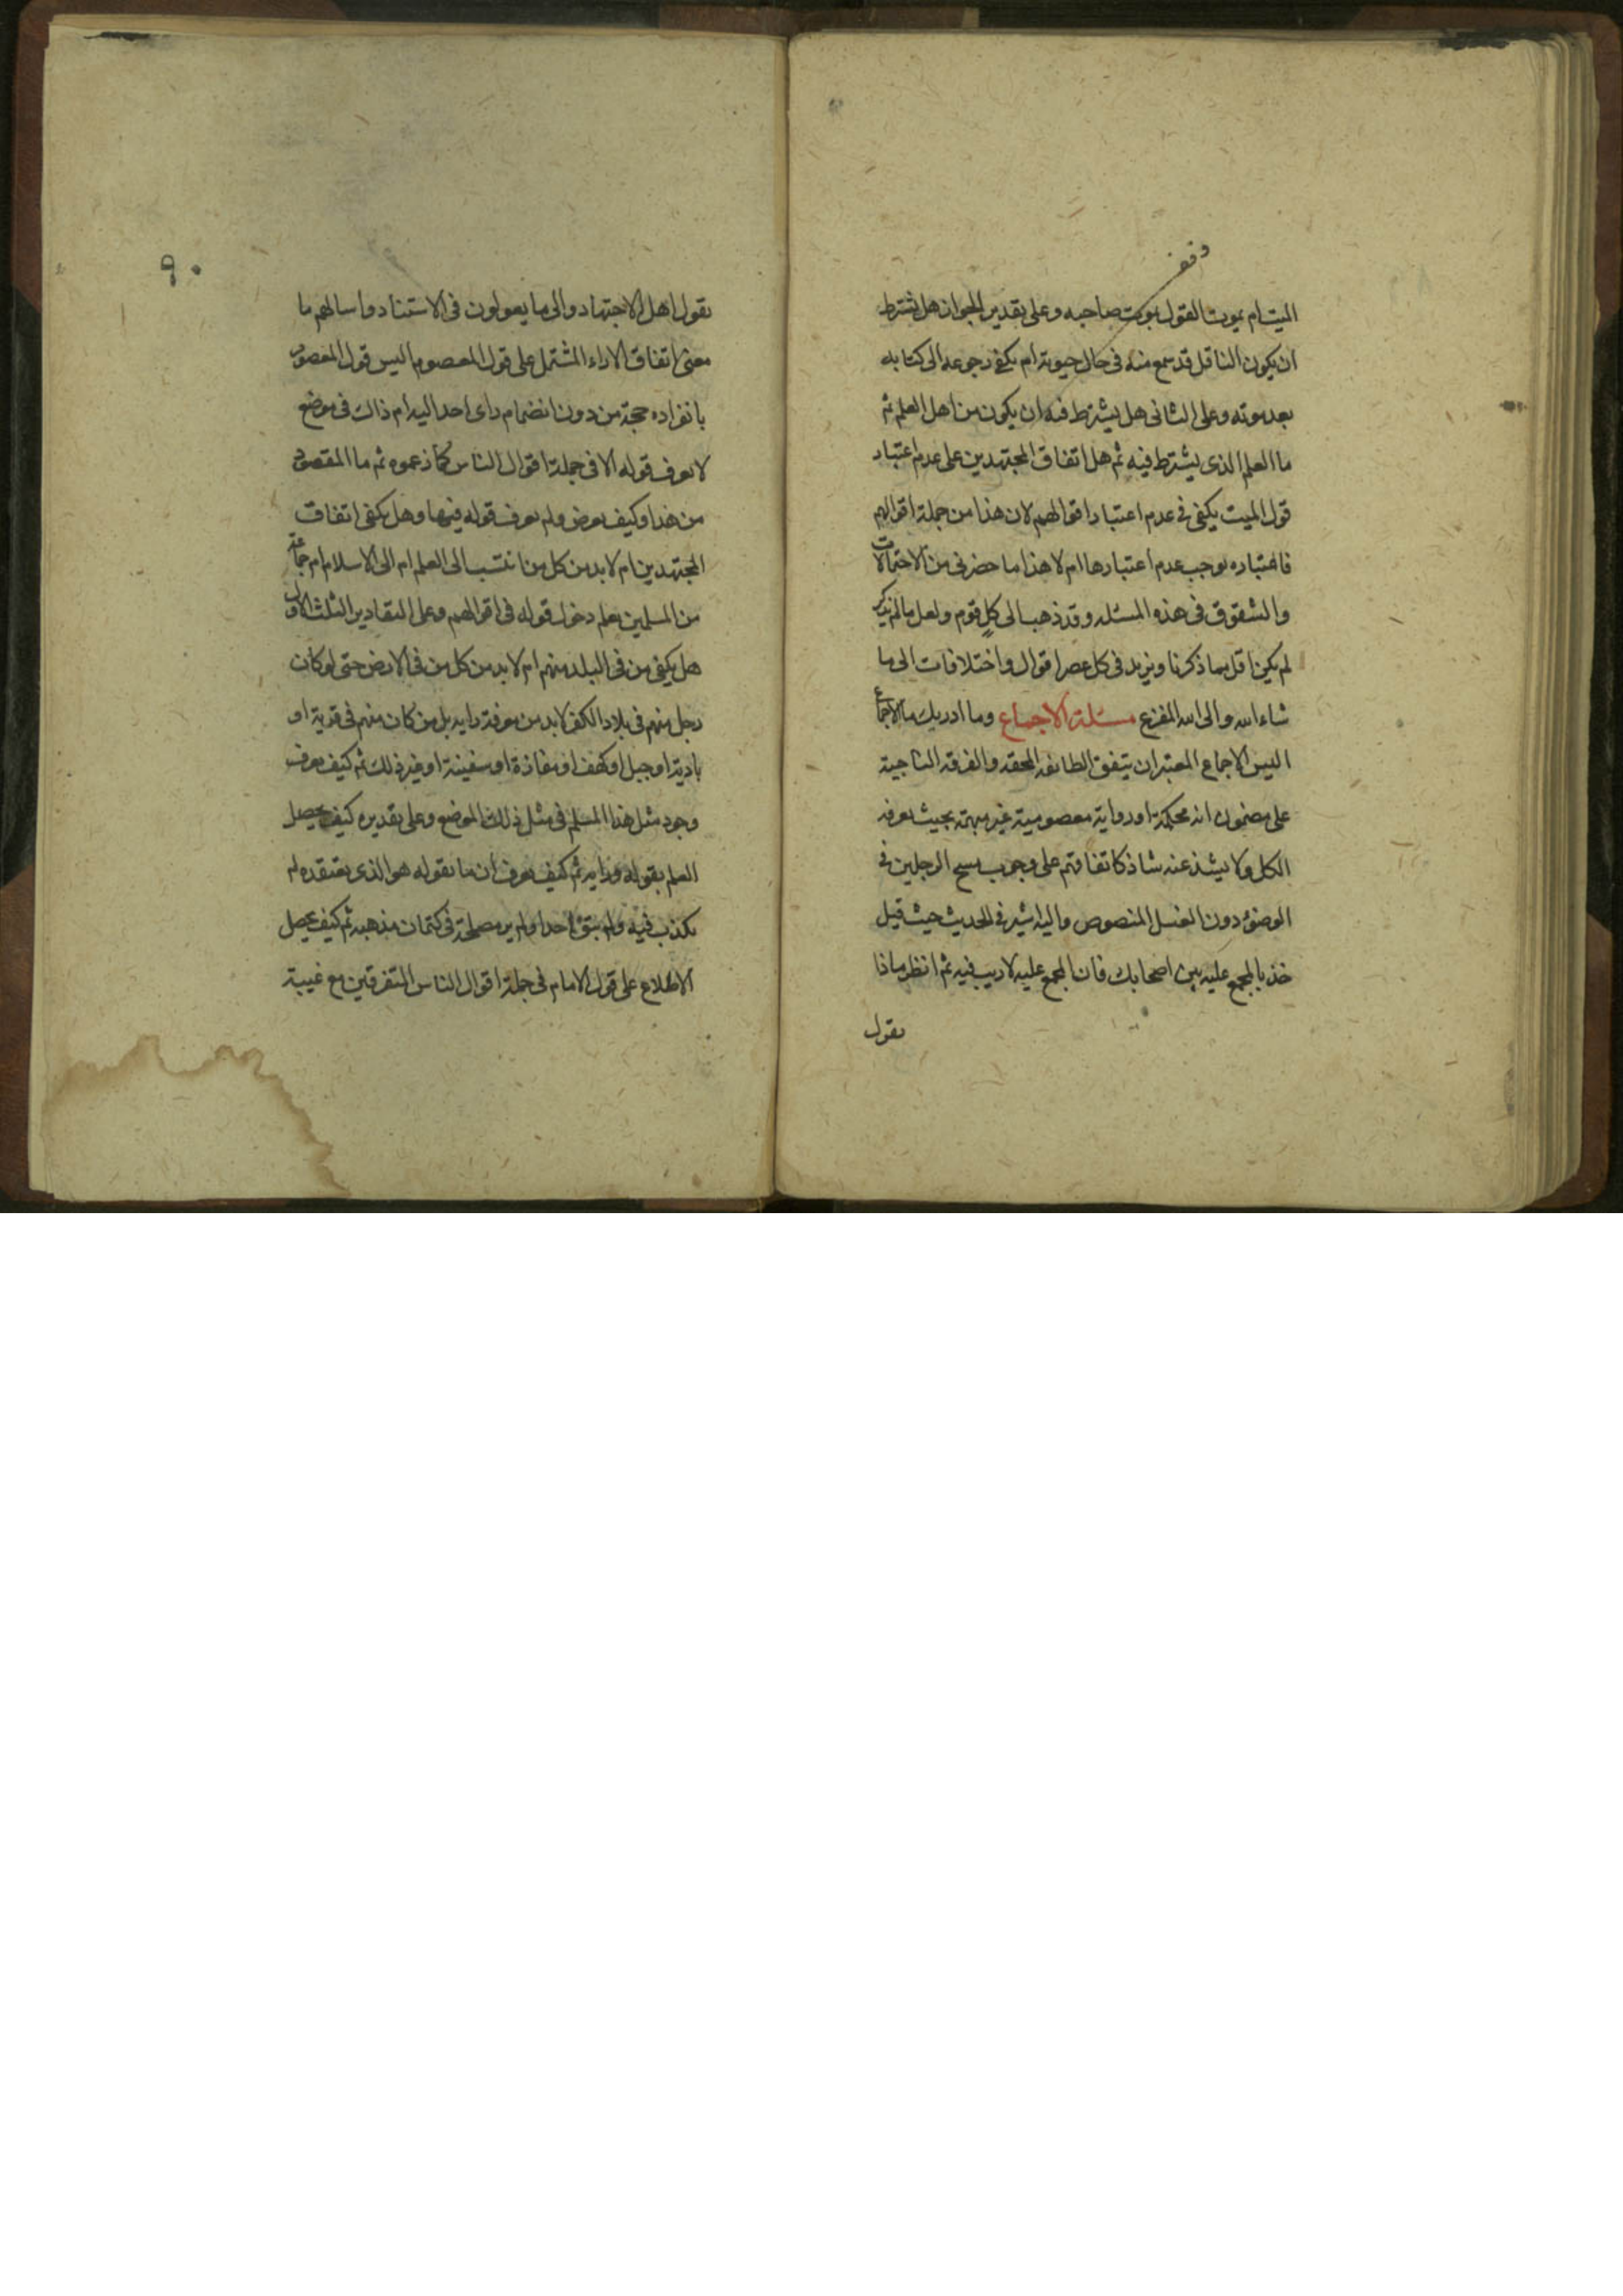 وقف
الميت ام يموت القول بموت صاحبه وعلى تقدير الجواز هل يشترط
ان يكون الناقل قد سمع منه فى حال حيوته ام يكفى رجوعه الى كتابه
بعد موته وعلى الثانى هل يشترط فيه ان يكون من اهل العلم ثم
ما العلم الذى يشترط فيه ثم هل اتفاق المجتهدين على عدم اعتبار
قول الميت يكفى فى عدم اعتبار اقوالهم لان هذا من جملة اقوالهم
فاعتباره يوجب عدم اعتبارها ام لا هذا ما حضرنى من الاحتمالات
والشقوق فى هذه المسئله وقد ذهب الى كل قوم ولعل ما لم نذكر
لم يكن اقل مما ذكرنا ويزيد فى كل عصر اقوال واختلافات الى ما
شاء الله والى الله المفزع مسئلة الاجماع وما ادريك ما الاجماع
اليس الاجماع المعتبر ان يتفق الطائفه المحقه والفرقه الناجية
على مضمون اية محكمة او رواية معصومية غير مبهمة بحيث يعرفه
الكل ولا يشذ عنه شاذ كاتفاقهم على وجوب مسح الرجلين فى
الوضوء دون الغسل المنصوص واليه اشير فى الحديث حيث قيل
خذ بالمجمع عليه بين اصحابك فان المجمع عليه لا ريب فيه ثم انظر ماذا
يقول
٩٠
يقول اهل الاجتهاد والى ما يعولون فى الاستناد واسالهم ما
معنى اتفاق الاراء المشتمل على قول المعصوم اليس قول المعصوم
بانفراده حجة من دون انضمام راى احد اليه ام ذاك فى موضع
لا يعرف قوله الا فى جملة اقوال الناس كما زعموه ثم ما المقصود
من هذا وكيف يعرض ولم يعرف قوله فيها وهل يكفى اتفاق
المجتهدين ام لا بد من كل من انتسب الى العلم ام الى الاسلام ام جماعة
من المسلمين يعلم دخول قوله فى اقوالهم وعلى التقادير الثلث الاول
هل يكفى من فى البلد منهم ام لا بد من كل من فى الارض حتى لو كان
رجل منهم فى بلاد الكفر لا بد من معرفة رايه بل من كان منهم فى قرية او
بادية او جبل او كهف او مفازة او سفينة او غير ذلك ثم كيف يعرف
وجود مثل هذا المسلم فى مثل ذلك الموضع وعلى تقديره كيف يحصل
العلم بقوله ورايه ثم كيف يعرف ان ما يقوله هو الذى يعتقده لم
يكذب فيه ولم يتق احدا ولم ير مصلحة فى كتمان مذهبه ثم كيف يحصل
الاطلاع على قول الامام فى جملة اقوال الناس المتفرقين مع غيبة